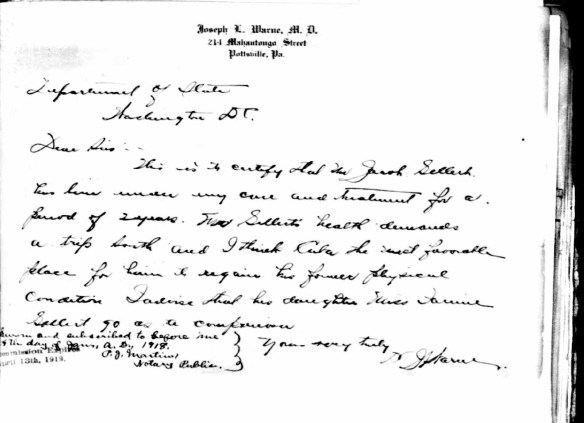 Joseph L. Warne, M. D.
214 Mahantongo Street
Pottsville, Pa.
Department of State
Washington D.C.
Dear Sirs:-
This is to certify that Mr Jacob Gellert
has been under my care and treatment for a
period of 2 years. Gellerts health demands
a trip South and I think Cuba the most favorable
place for him to regain his former physical
condition I advise that his daughter Miss Fannie
Gellert go as companion
Yours very truly
JL Warne.
Sworn and subscribed to before me
8th day of Jany, A.D., 1918.
P.J. Martin,
Notary Public.
Commission Expires
April 13th, 1919.